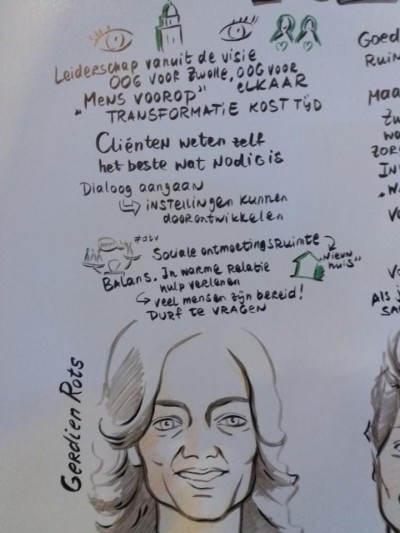 Leiderschap vanuit de visie
OOG VOOR Zwolle, OOG VOOR
"MENS VOOROP" ELKAAR
TRANSFORMATIE KOST TIJD
Cliënten weten zelf
het beste wat nodig is
Dialoog aangaan
INSTELLINGEN KUNNEN
DOORONTWIKKELEN
Sociale ontmoetingsruimte
"NIEUW
HUIS"
BALANS. IN WARME RELATIE
HULP VERLENEN
VEEL MENSEN ZIJN BEREID!
DURF TE VRAGEN
Gerdien Rots
Goed
RUIM
ZOR